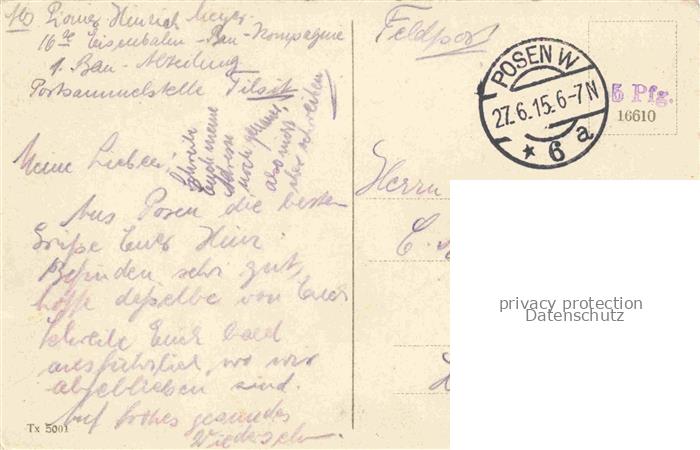 Pionier Heinrich Meyer
16te Eisenbahn-Bau-Kompagnie
1. Bau-Abteilung
Postsammelstelle Tilsit
Schreibe
Euch meine
Adresse
noch genauer,
also mir
aber schreiben
Meine Lieben!
Aus Posen die besten
Grüße Euer Heinr.
Befinden sehr gut,
hoffe dasselbe von Euch
Schreibe Euch bald
ausführlich, wo wir
abgeblieben sind.
Auf frohes gesundes
Wiedersehn
Tx 5001
Feldpost
POSEN W
27.6.15.6-7N
* 6 a
5 Pfg.
16610
Herrn
C.
privacy protection
Datenschutz